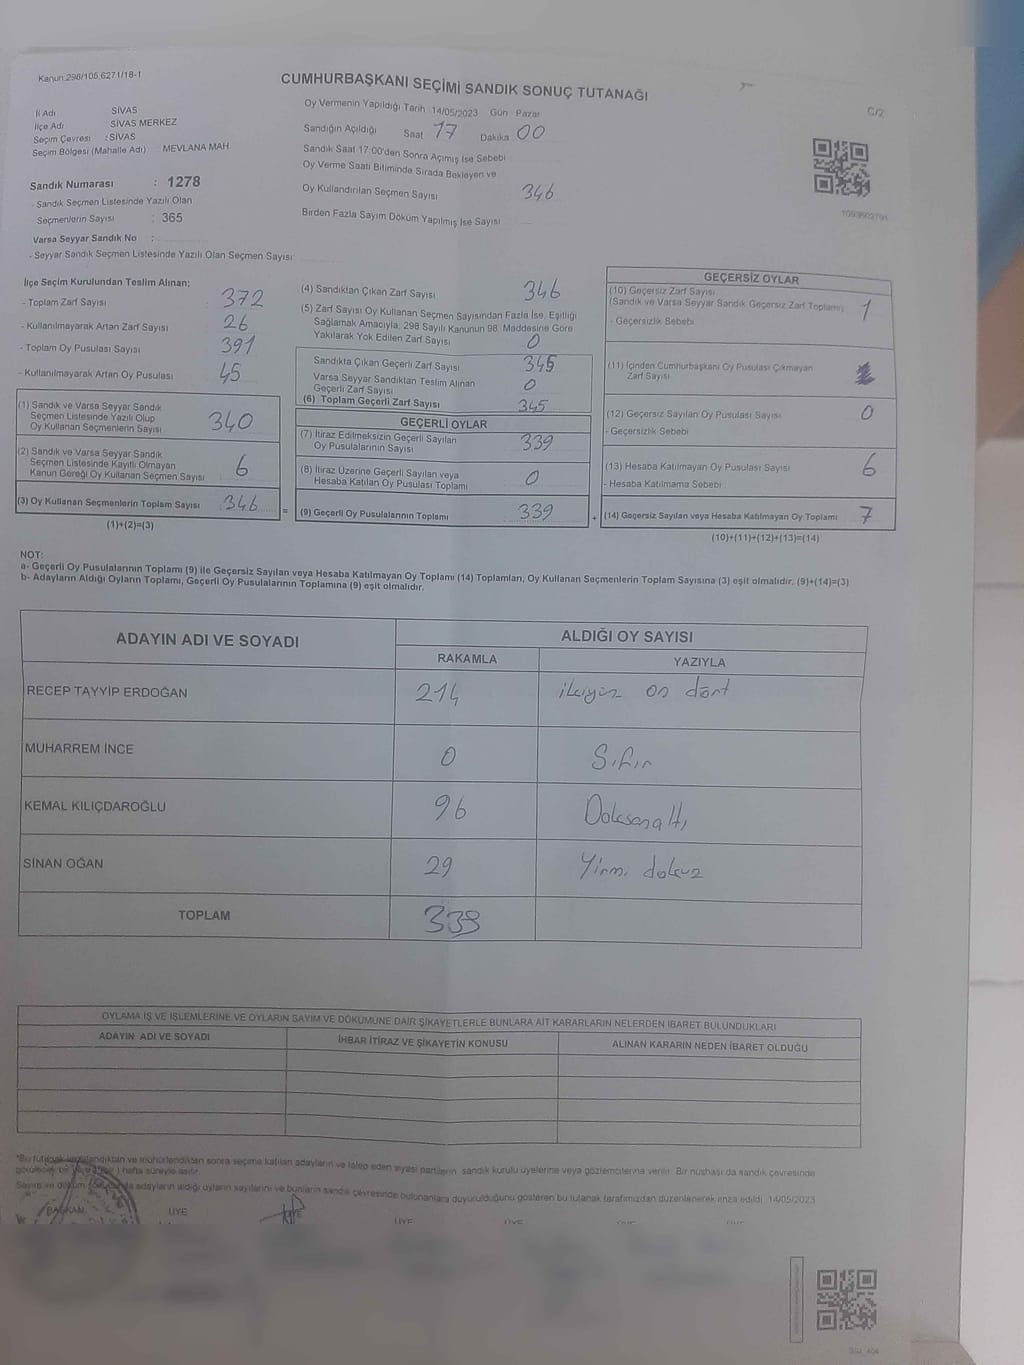 Kanun.298/105,6271/18-1
CUMHURBAŞKANI SEÇİMİ SANDIK SONUÇ TUTANAĞI
C/2
İl Adı SİVAS
İlçe Adı SİVAS MERKEZ
Seçim Çevresi : SİVAS
Seçim Bölgesi (Mahalle Adı) MEVLANA MAH
Sandık Numarası : 1278
- Sandık Seçmen Listesinde Yazılı Olan
Seçmenlerin Sayısı : 365
Varsa Seyyar Sandık No :
- Seyyar Sandık Seçmen Listesinde Yazılı Olan Seçmen Sayısı:
Oy Vermenin Yapıldığı Tarih 14/05/2023 Gün Pazar
Sandığın Açıldığı Saat 17 Dakika 00
Sandık Saat 17:00'den Sonra Açımış İse Sebebi
Oy Verme Saati Bitiminde Sırada Bekleyen ve
Oy Kullandırılan Seçmen Sayısı 346
Birden Fazla Sayım Döküm Yapılmış İse Sayısı
İlçe Seçim Kurulundan Teslim Alınan;
- Toplam Zarf Sayısı : 372
- Kullanılmayarak Artan Zarf Sayısı 26
- Toplam Oy Pusulası Sayısı 391
- Kullanılmayarak Artan Oy Pusulası 45
(1) Sandık ve Varsa Seyyar Sandık
Seçmen Listesinde Yazılı Olup
Oy Kullanan Seçmenlerin Sayısı 340
(2) Sandık ve Varsa Seyyar Sandık
Seçmen Listesinde Kayıtlı Olmayan
Kanun Gereği Oy Kullanan Seçmen Sayısı 6
(3) Oy Kullanan Seçmenlerin Toplam Sayısı 346
(1)+(2)=(3)
=
(4) Sandıktan Çıkan Zarf Sayısı 346
(5) Zarf Sayısı Oy Kullanan Seçmen Sayısından Fazla İse, Eşitliği
Sağlamak Amacıyla; 298 Sayılı Kanunun 98. Maddesine Göre
Yakılarak Yok Edilen Zarf Sayısı 0
Sandıkta Çıkan Geçerli Zarf Sayısı 345
Varsa Seyyar Sandıktan Teslim Alınan
Geçerli Zarf Sayısı 0
(6) Toplam Geçerli Zarf Sayısı 345
GEÇERLİ OYLAR
(7) İtiraz Edilmeksizin Geçerli Sayılan
Oy Pusulalarının Sayısı 339
(8) İtiraz Üzerine Geçerli Sayılan veya
Hesaba Katılan Oy Pusulası Toplamı 0
(9) Geçerli Oy Pusulalarının Toplamı 339
+
GEÇERSİZ OYLAR
(10) Geçersiz Zarf Sayısı
(Sandık ve Varsa Seyyar Sandık Geçersiz Zarf Toplamı) 1
- Geçersizlik Sebebi
(11) İçinden Cumhurbaşkanı Oy Pusulası Çıkmayan
Zarf Sayısı
(12) Geçersiz Sayılan Oy Pusulası Sayısı 0
- Geçersizlik Sebebi
(13) Hesaba Katılmayan Oy Pusulası Sayısı 6
- Hesaba Katılmama Sebebi
(14) Geçersiz Sayılan veya Hesaba Katılmayan Oy Toplamı 7
(10)+(11)+(12)+(13)=(14)
NOT:
a- Geçerli Oy Pusulalarının Toplamı (9) ile Geçersiz Sayılan veya Hesaba Katılmayan Oy Toplamı (14) Toplamları, Oy Kullanan Seçmenlerin Toplam Sayısına (3) eşit olmalıdır. (9)+(14)=(3)
b- Adayların Aldığı Oyların Toplamı, Geçerli Oy Pusulalarının Toplamına (9) eşit olmalıdır.
ADAYIN ADI VE SOYADI ALDIĞI OY SAYISI
RAKAMLA YAZIYLA
RECEP TAYYİP ERDOĞAN 214 ikiyüz on dört
MUHARREM İNCE 0 Sıfır
KEMAL KILIÇDAROĞLU 96 Doksanaltı
SİNAN OĞAN 29 Yirmi dokuz
TOPLAM 339
OYLAMA İŞ VE İŞLEMLERİNE VE OYLARIN SAYIM VE DÖKÜMÜNE DAİR ŞİKAYETLERLE BUNLARA AİT KARARLARIN NELERDEN İBARET BULUNDUKLARI
ADAYIN ADI VE SOYADI İHBAR İTİRAZ VE ŞİKAYETİN KONUSU ALINAN KARARIN NEDEN İBARET OLDUĞU
*Bu tutanak imzalandıktan ve mühürlendikten sonra seçime katılan adayların ve talep eden siyasi partilerin sandık kurulu üyelerine veya gözlemcilerine verilir. Bir nüshası da sandık çevresinde
1 hafta süreyle asılır.
Sayım ve döküm adayların aldığı oyların sayılarını ve bunların sandık çevresinde bulunanlara duyurulduğunu gösteren bu tutanak tarafımızdan düzenlenerek imza edildi. 14/05/2023
BAŞKAN ÜYE ÜYE ÜYE